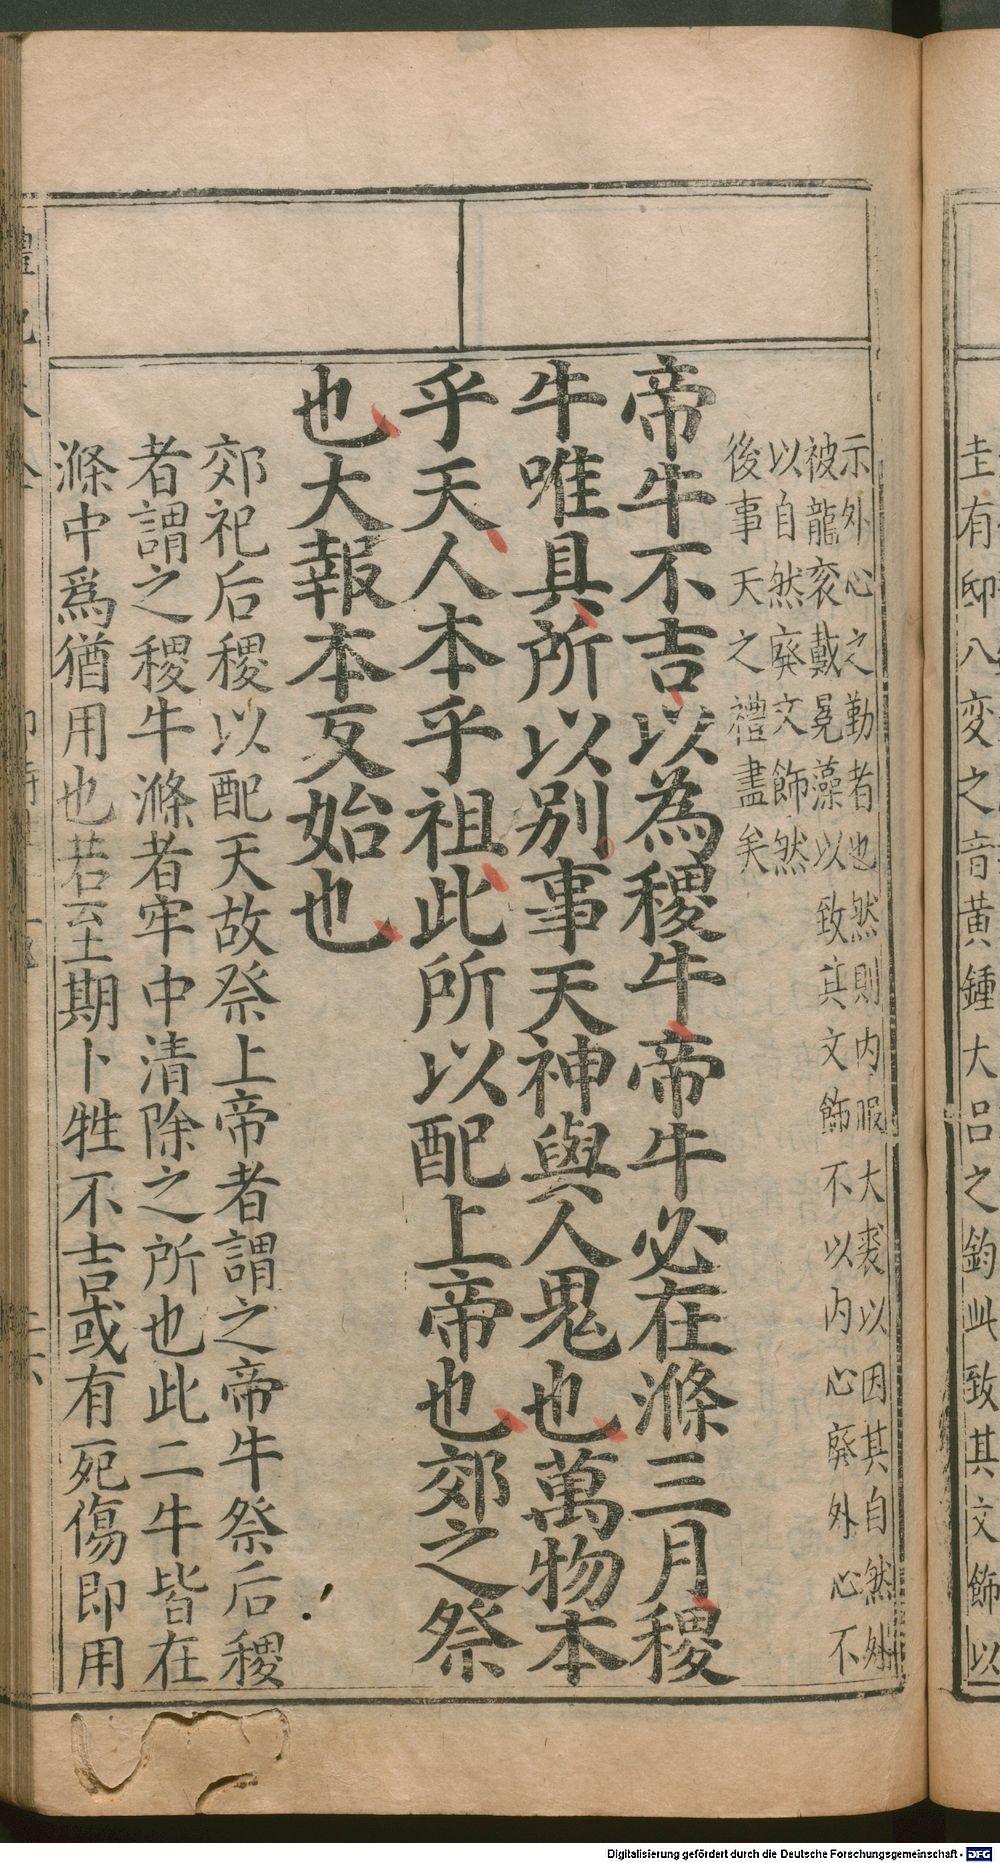 示外心之勤者也然則内服大裘以因其自然外
被龍衮戴冕藻以致其文飾不以内心廢外心不
以自然廢文飾然
後事天之禮盡矣
帝牛不吉以為稷牛帝牛必在滌三月稷
牛唯具所以别事天神與人鬼也萬物本
乎天人本乎祖此所以配上帝也郊之祭
也大報本反始也
郊祀后稷以配天故祭上帝者謂之帝牛祭后稷
者謂之稷牛滌者牢中清除之所也此二牛皆在
滌中爲猶用也若至期卜牲不吉或有死傷即用
圭有邸八变之音黄鍾大吕之鈞此致其文飾以
Digitalisierung gefördert durch die Deutsche Forschungsgemeinschaft - DFG